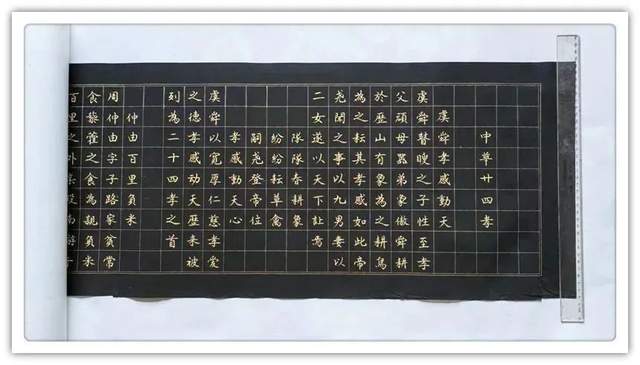 中華廿四孝
虞舜孝感動天
虞舜瞽瞍之子性至孝
父頑母嚚弟象傲舜耕
於歷山有象為之耕鳥
為之耘其孝感如此帝
堯聞之事以九男妻以
二女遂以天下让焉
隊隊春耕象
紛紛耘草禽
嗣堯登帝位
孝感動天心
虞舜以寬厚仁慈孝愛
之德孝感動天歷来被
列為二十四孝之首
仲由百里負米
周仲由字子路家貧常
食藜藿之食為親負米
百里之外親歿南游